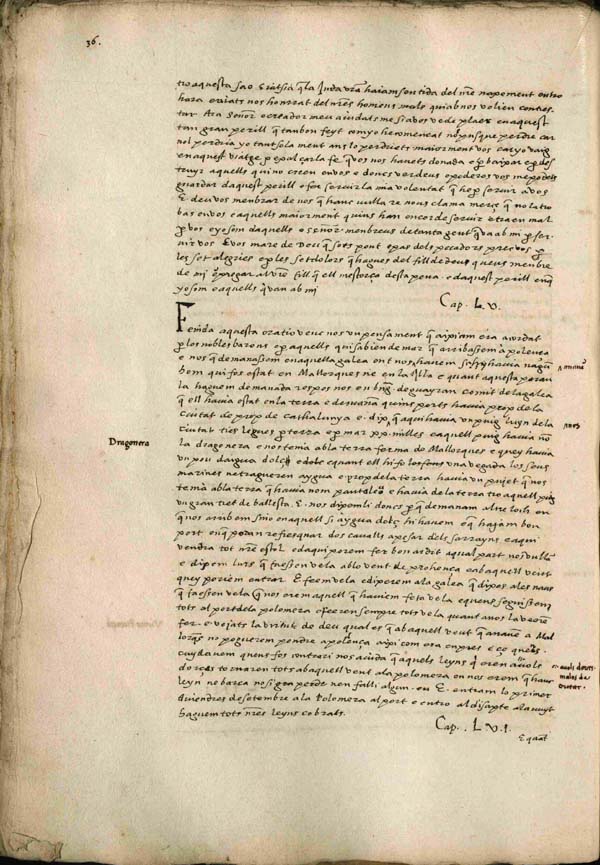 36.
tro aquesta sao E ia tsia q̃ la Juda vr̃a haiam sentida del mr̃e nap o ment en tro
hora eviats nos honrrat del mr̃es homens mals qui ab nos volien contras
tar Ara Senõr e creador meu aiudats me si a vos ve de plaer en aquest
tan gran perill q̃ tan bon feyt com yo he comencat no puxque perdre car
nol perdria yo tant sola ment ans lo perdriets maiorment vos car yo vaig
en aquest viatge p exalçar la fe q̃ vos nos havets donada e p baixar e p des
truyr aquells qui no creen en vos e doncs ver deus e poderos vos me podets
guardar daquest perill e fer servir la mia volentat q̃ he p servir a vos
E deu vos menbrar de nos q̃ hanc null a re nous clama merçe q̃ no la tro
bas en vos e aquells maiorment quins han encor de servir e traen mal
p vos e yo som daquells e senõr menbreus de tanta gent q̃ va ab mi p ser
vir vos E vos mare de Deu q̃ sots pont e pas dels pecadors prech vos p
les set alegries e p les set dolors q̃ hagues del fill de deus queus menbre
de mi e pregar al vr̃e fill q̃ ell me storça desta pena e daquest perill en q̃
yo som e aquells q̃ van ab mi
Cap. L.V.
Fenida aquesta oratio venc nos un pensament q̃ axi com era acordat
p los nobles barons e p aquells qui sabien de mar q̃ arribassem a polença
e nos q̃ demanassem en aquella galea ont nos havem si hy havia nagũ
hom qui fos estat en Mallorques ne en la illa e quant aquesta paraula
la haguem demanada respos nos en bñg. de guayran Comit de la galea
q̃ ell havia estat en la terra e demanã quins ports havia prop de la
Ciutat de prop de Cathalunya e dix q̃ aqui havia un puig luyn de la
Ciutat tres legues p terra e p mar xx. milles e aquell puig havia nõ
Dragonera
la dragonera e nos tenia ab la terra ferma de Mallorques e que y havia
un pou daigua dolça e dolc e quant ell hi fo los feu una vegada los sous
mariners ne tragueren aygua e prop de la terra havia un pujet q̃ nos
tenia ab la terra q̃ havia nom pantaleu e havia de la terra tro aquell puig
un gran tret de ballesta. E nos dixem li doncs q̃ demanam altre loch on
q̃ nos arribem sino en aquell si aygua dolça hi havem e q̃ hajam bon
port on q̃ poran refresquar dos cavalls a pesar dels sarrayns e aqui
vendra tot nr̃e estol e daqui porem fer bon ardit a qual part nos vullã
e dixem lurs q̃ faessen vela ab lo vent de prohença e ab aquell vent
que y porien entrar E feem vela e dixerem a la galea q̃ dixes a les naus
q̃ faessen vela q̃ nos orem aquell q̃ haviem feta vela e quens seguissen
tots al port de la polomera e feeren sempre tots vela quant a nos la veerẽ
fer e vejats la virtut de deu qual es q̃ ab aquell vent q̃ anavẽ a Mal
lorqs no poguerem pendre a polença axi com era empres e ço que ns
cuydavem quens fos contrari nos aiuda q̃ aquels leyns q̃ eren avols
dorça tornaren tots ab aquell vent a la polomera on nos erem q̃ hanc
leyn ne barca nos gra perde nen falli algun. eu E. entram lo primer
divendres de setembre a la Polomera al port e entro al disapte a la nuyt
haguem tots nr̃es leyns cobrats.
Cap. L.V.I.
E quãt